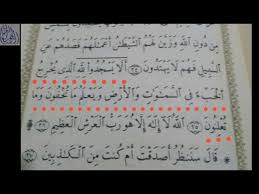 مِن دُونِ ٱللَّهِ وَزَيَّنَ لَهُمُ ٱلشَّيْطَٰنُ أَعْمَٰلَهُمْ فَصَدَّهُمْ عَنِ
ٱلسَّبِيلِ فَهُمْ لَا يَهْتَدُونَ ٢٤ أَلَّا يَسْجُدُوا۟ لِلَّهِ ٱلَّذِى يُخْرِجُ
ٱلْخَبْءَ فِى ٱلسَّمَٰوَٰتِ وَٱلْأَرْضِ وَيَعْلَمُ مَا تُخْفُونَ وَمَا
تُعْلِنُونَ ٢٥ ٱللَّهُ لَآ إِلَٰهَ إِلَّا هُوَ رَبُّ ٱلْعَرْشِ ٱلْعَظِيمِ ۩ ٢٦
قَالَ سَنَنظُرُ أَصَدَقْتَ أَمْ كُنتَ مِنَ ٱلْكَٰذِبِينَ ٢٧